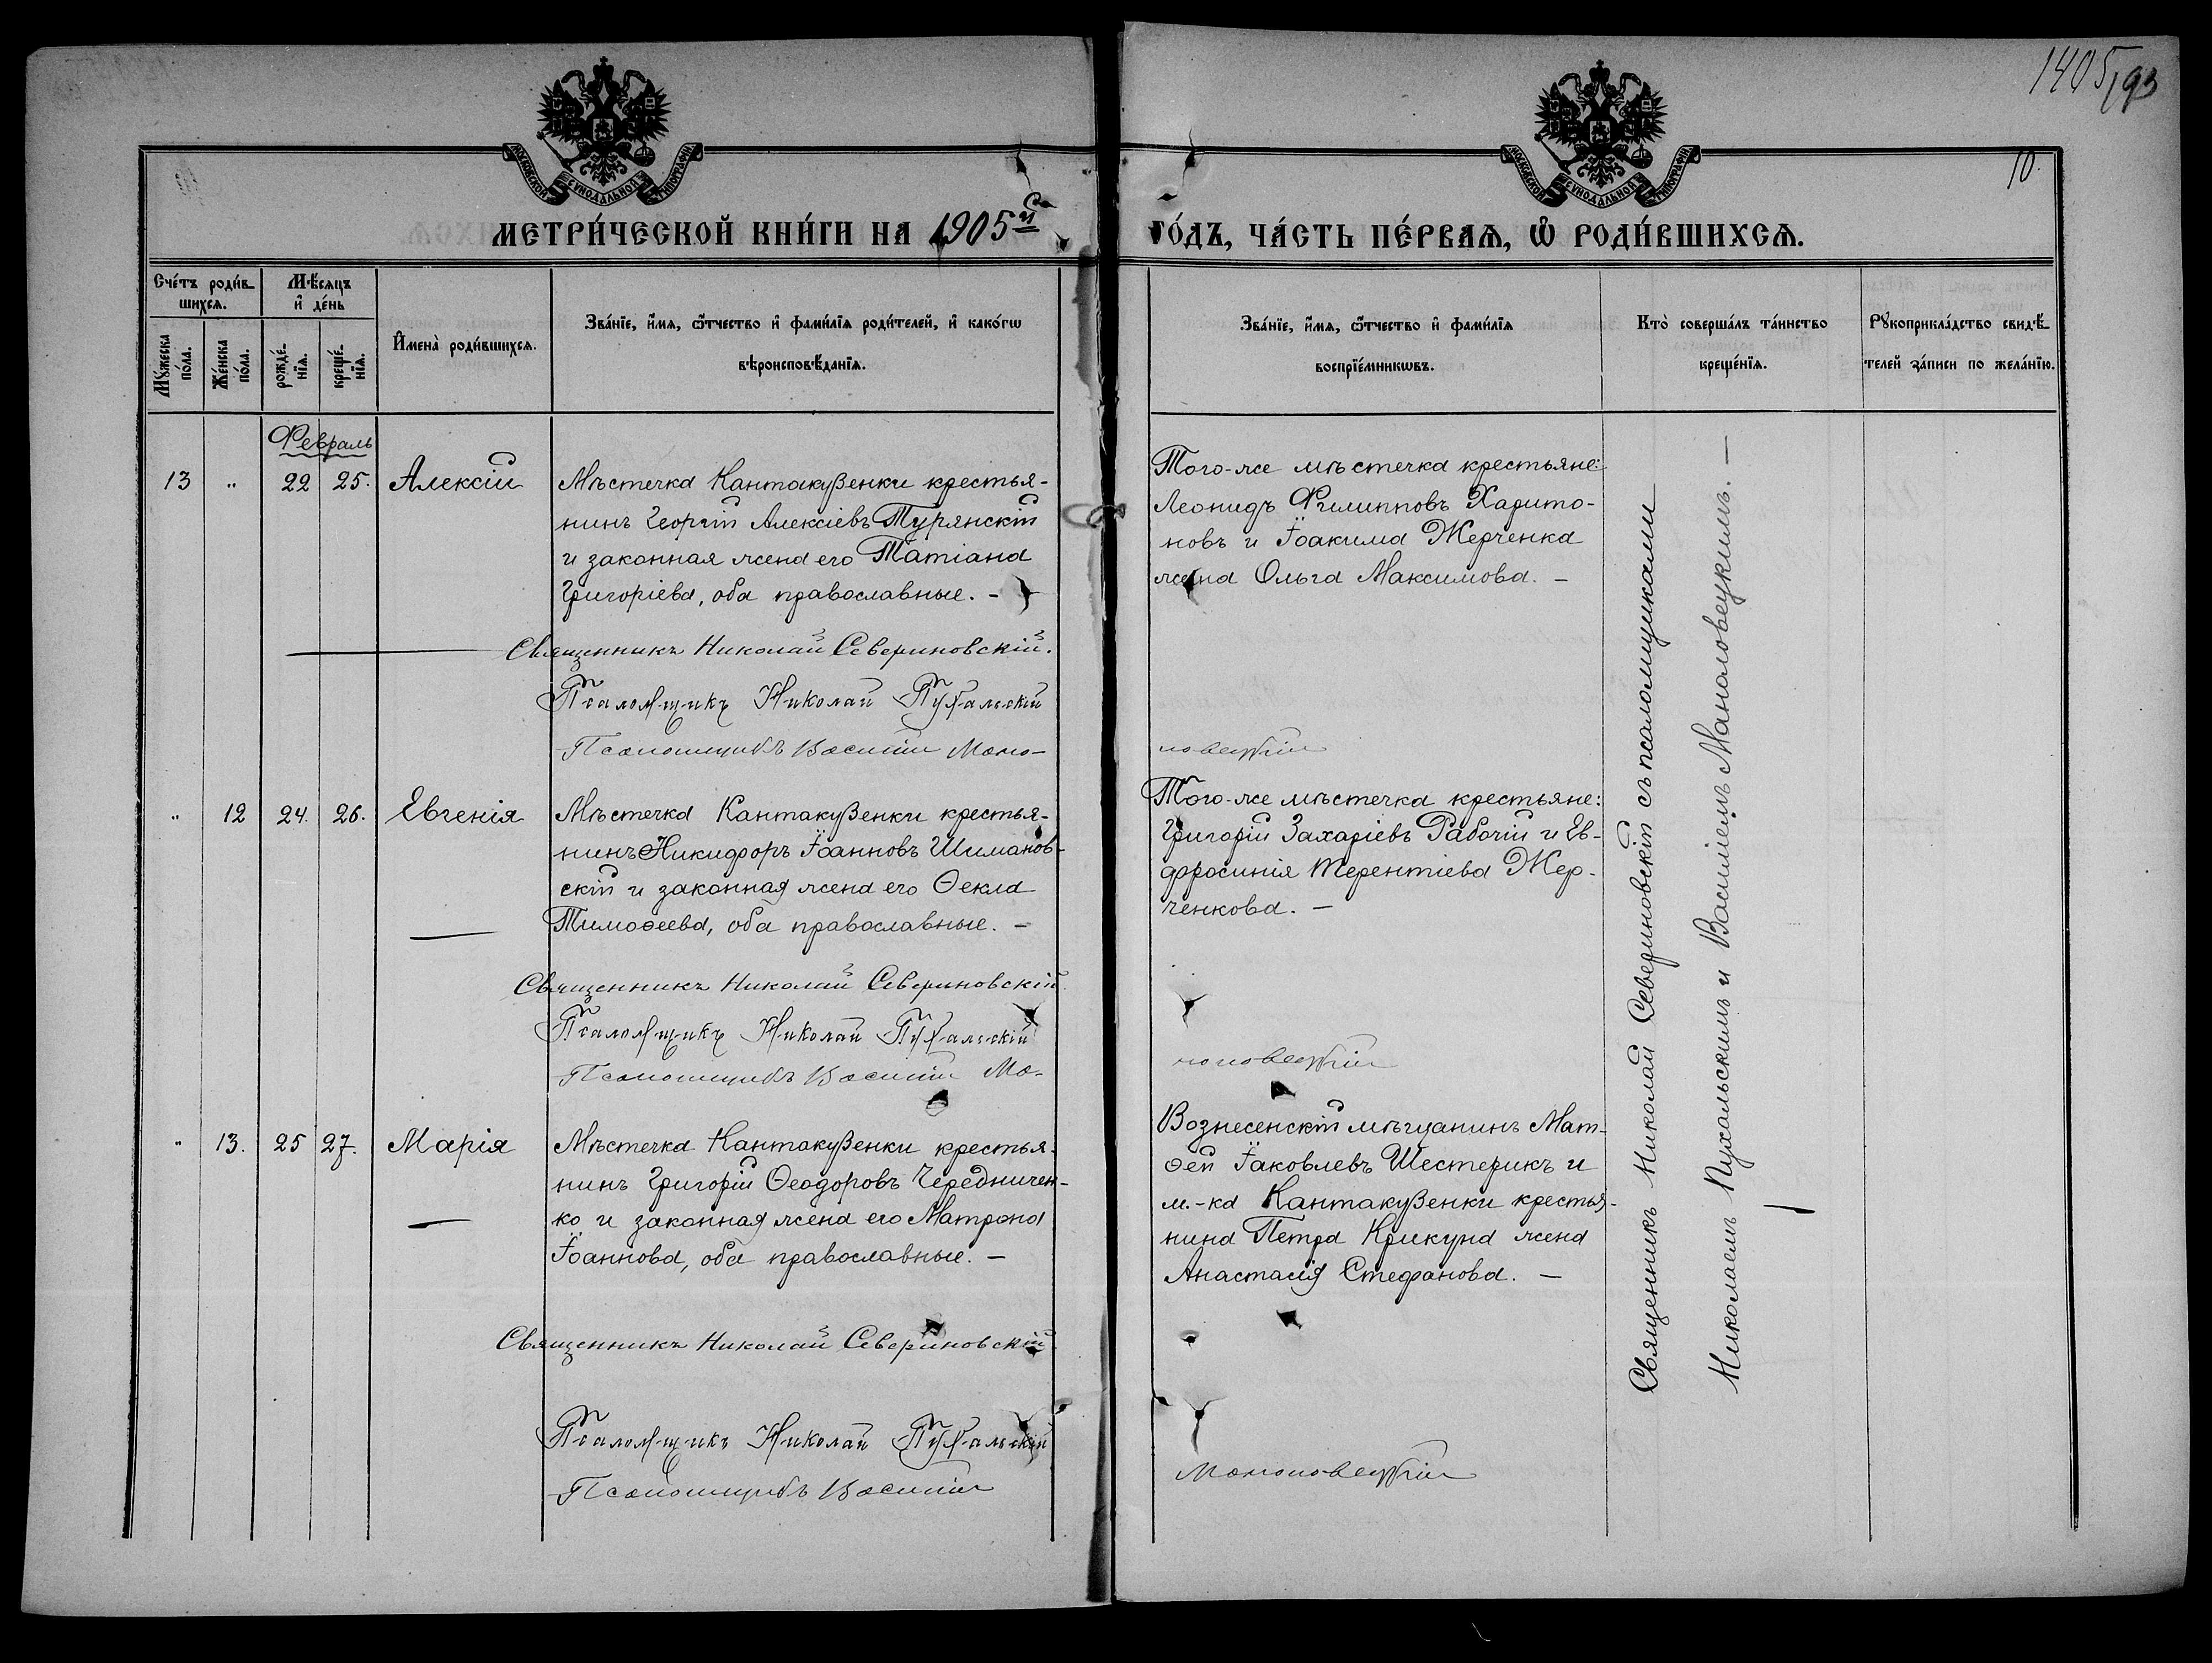 1405/93
10.
МОСКОВСКОЙ СѴНОДАЛЬНОЙ ТИПОГРАФІИ
МОСКОВСКОЙ СѴНОДАЛЬНОЙ ТИПОГРАФІИ
МЕТРИ́ЧЕСКОЙ КНИ́ГИ НА 1905й
ГО́ДЪ, ЧА́СТЬ ПЕ́РВАѦ, Ѡ҆ РОДИ́ВШИХСѦ.
Сче́тъ роди́в-
шихсѧ.
Мꙋ́жеска по́ла.
Же́нска по́ла.
Мѣ́сѧцъ
и҆ де́нь
рожде́-
нїѧ.
креще́-
нїѧ.
И҆мена̀ роди́вшихсѧ.
Зва́нїе, и҆́мѧ, ѻ҆́тчество и҆ фами́лїѧ роди́телей, и҆ како́гѡ
вѣроисповѣ́данїѧ.
Зва́нїе, и҆́мѧ, ѻ҆́тчество и҆ фами́лїѧ
воспрїе́мникѡвъ.
Кто̀ соверша́лъ та́инство
креще́нїѧ.
Рꙋкоприкла́дство свидѣ́-
телей за́писи по жела́нїю.
Февраль
13 " 22 25. Алексій
Мѣстечка Кантакузенки крестья-
нинъ Георгій Алексіевъ Турянскій
и законная жена его Татіана
Григоріева, оба православные. -
Священникъ Николай Севериновскій.
Псаломщикъ Николай Пухальскій
Псаломщикъ Василій Мано-
Того-же мѣстечка крестьяне:
Леонидъ Филипповъ Харито-
новъ и Іоакима Жерченка
жена Ольга Максимова. -
ловецкій
" 12 24. 26. Евгенія
Мѣстечка Кантакузенки крестья-
нинъ Никифоръ Іоанновъ Шиманов-
скій и законная жена его Ѳекла
Тимоѳеева, оба православные. -
Священникъ Николай Севериновскій
Псаломщикъ Николай Пухальскій
Псаломщикъ Василій Ма-
Того-же мѣстечка крестьяне:
Григорій Захаріевъ Рабочій и Ев-
фросинія Терентіева Жер-
ченкова. -
ноловецкій
" 13. 25 27. Марія
Мѣстечка Кантакузенки крестья-
нинъ Григорій Ѳеодоровъ Чередничен-
ко и законная жена его Матрона
Іоаннова, оба православные. -
Священникъ Николай Севериновскій
Псаломщикъ Николай Пухальскій
Псаломщикъ Василій
Вознесенскій мѣщанинъ Мат-
ѳей Іаковлевъ Шестерикъ и
м.-ка Кантакузенки крестья-
нина Петра Крикуна жена
Анастасія Стефанова. -
Маноловецкій
Священникъ Николай Севериновскій съ псаломщиками
Николаемъ Пухальскимъ и Василіемъ Маноловецкимъ. -